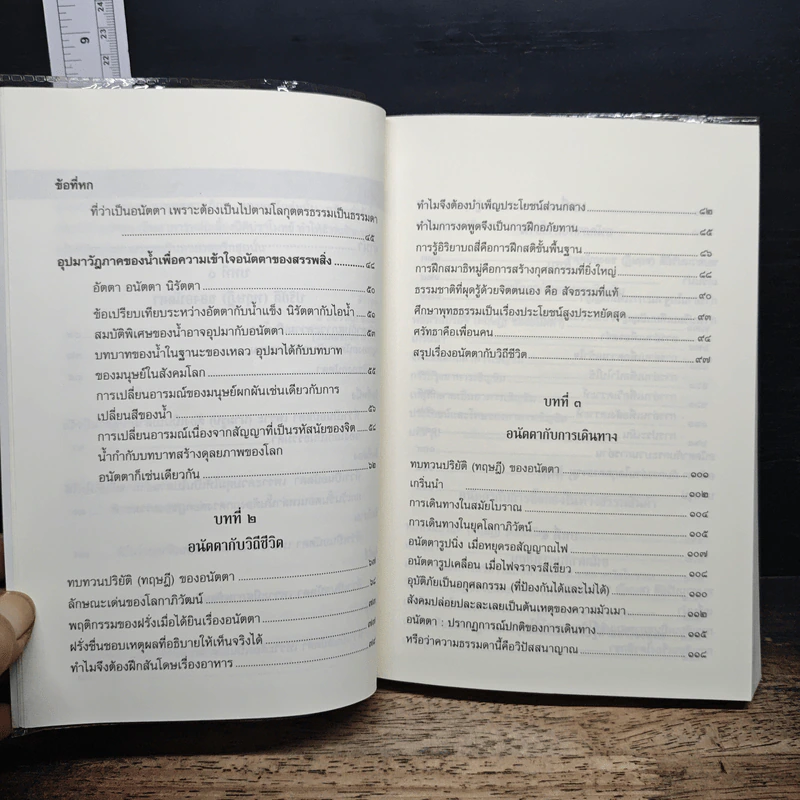 9
24
23
22
ข้อที่หก
ที่ว่าเป็นอนัตตา เพราะต้องเป็นไปตามโลกุตตรธรรมเป็นธรรมดา
........ ๔๕
อุปมาวัฏภาคของน้ำเพื่อความเข้าใจอนัตตาของสรรพสิ่ง ........ ๔๘
อัตตา อนัตตา นิรัตตา ........ ๕๐
ข้อเปรียบเทียบระหว่างอัตตากับน้ำแข็ง นิรัตตากับไอน้ำ ๕๐
สมบัติพิเศษของน้ำอาจอุปมากับอนัตตา ........ ๕๓
บทบาทของน้ำในฐานะของเหลว อุปมาได้กับบทบาท
ของมนุษย์ในสังคมโลก ........ ๕๕
การเปลี่ยนอารมณ์ของมนุษย์ผกผันเช่นเดียวกับการ
เปลี่ยนสีของน้ำ ........ ๕๖
การเปลี่ยนอารมณ์เนื่องจากสัญญาที่เป็นรหัสนัยของจิต ๕๘
น้ำกำกับบทบาทสร้างดุลยภาพของโลก
อนัตตาก็เช่นเดียวกัน ........ ๖๒
บทที่ ๒
อนัตตากับวิถีชีวิต
ทบทวนปริยัติ (ทฤษฎี) ของอนัตตา ........ ๖๗
ลักษณะเด่นของโลกาภิวัตน์ ........ ๖๘
พฤติกรรมของฝรั่งเมื่อได้ยินเรื่องอนัตตา ........
ฝรั่งชื่นชอบเหตุผลที่อธิบายให้เห็นจริงได้ ........
ทำไมจึงต้องฝึกสันโดษเรื่องอาหาร ........
ทำไมจึงต้องบำเพ็ญประโยชน์ส่วนกลาง ........ ๘๒
ทำไมการงดพูดจึงเป็นการฝึกอภัยทาน ........ ๘๕
การรู้อิริยาบถสี่คือการฝึกสติขั้นพื้นฐาน ........ ๘๖
การฝึกสมาธิหมู่คือการสร้างกุศลกรรมที่ยิ่งใหญ่ ........ ๘๘
ธรรมชาติที่ผุดรู้ด้วยจิตตนเอง คือ สัจธรรมที่แท้ ........ ๙๐
ศึกษาพุทธธรรมเป็นเรื่องประโยชน์สูงประหยัดสุด ........ ๙๓
ศรัทธาคือเพื่อนคน ........ ๙๔
สรุปเรื่องอนัตตากับวิถีชีวิต ........ ๙๗
บทที่ ๓
อนัตตากับการเดินทาง
ทบทวนปริยัติ (ทฤษฎี) ของอนัตตา ........ ๑๐๑
เกริ่นนำ ........ ๑๐๒
การเดินทางในสมัยโบราณ ........ ๑๐๔
การเดินทางในยุคโลกาภิวัตน์ ........ ๑๐๕
อนัตตารูปนิ่ง เมื่อหยุดรอสัญญาณไฟ ........ ๑๐๗
อนัตตารูปเคลื่อน เมื่อไฟจราจรสีเขียว ........ ๑๐๘
อุบัติภัยเป็นอกุศลกรรม (ที่ป้องกันได้และไม่ได้) ........ ๑๑๐
สังคมปล่อยปละละเลยเป็นต้นเหตุของความมัวเมา ........ ๑๑๒
อนัตตา : ปรากฏการณ์ปกติของการเดินทาง ........ ๑๑๕
หรือว่าความธรรมดานี้คือวิปัสสนาญาณ ........ ๑๑๘